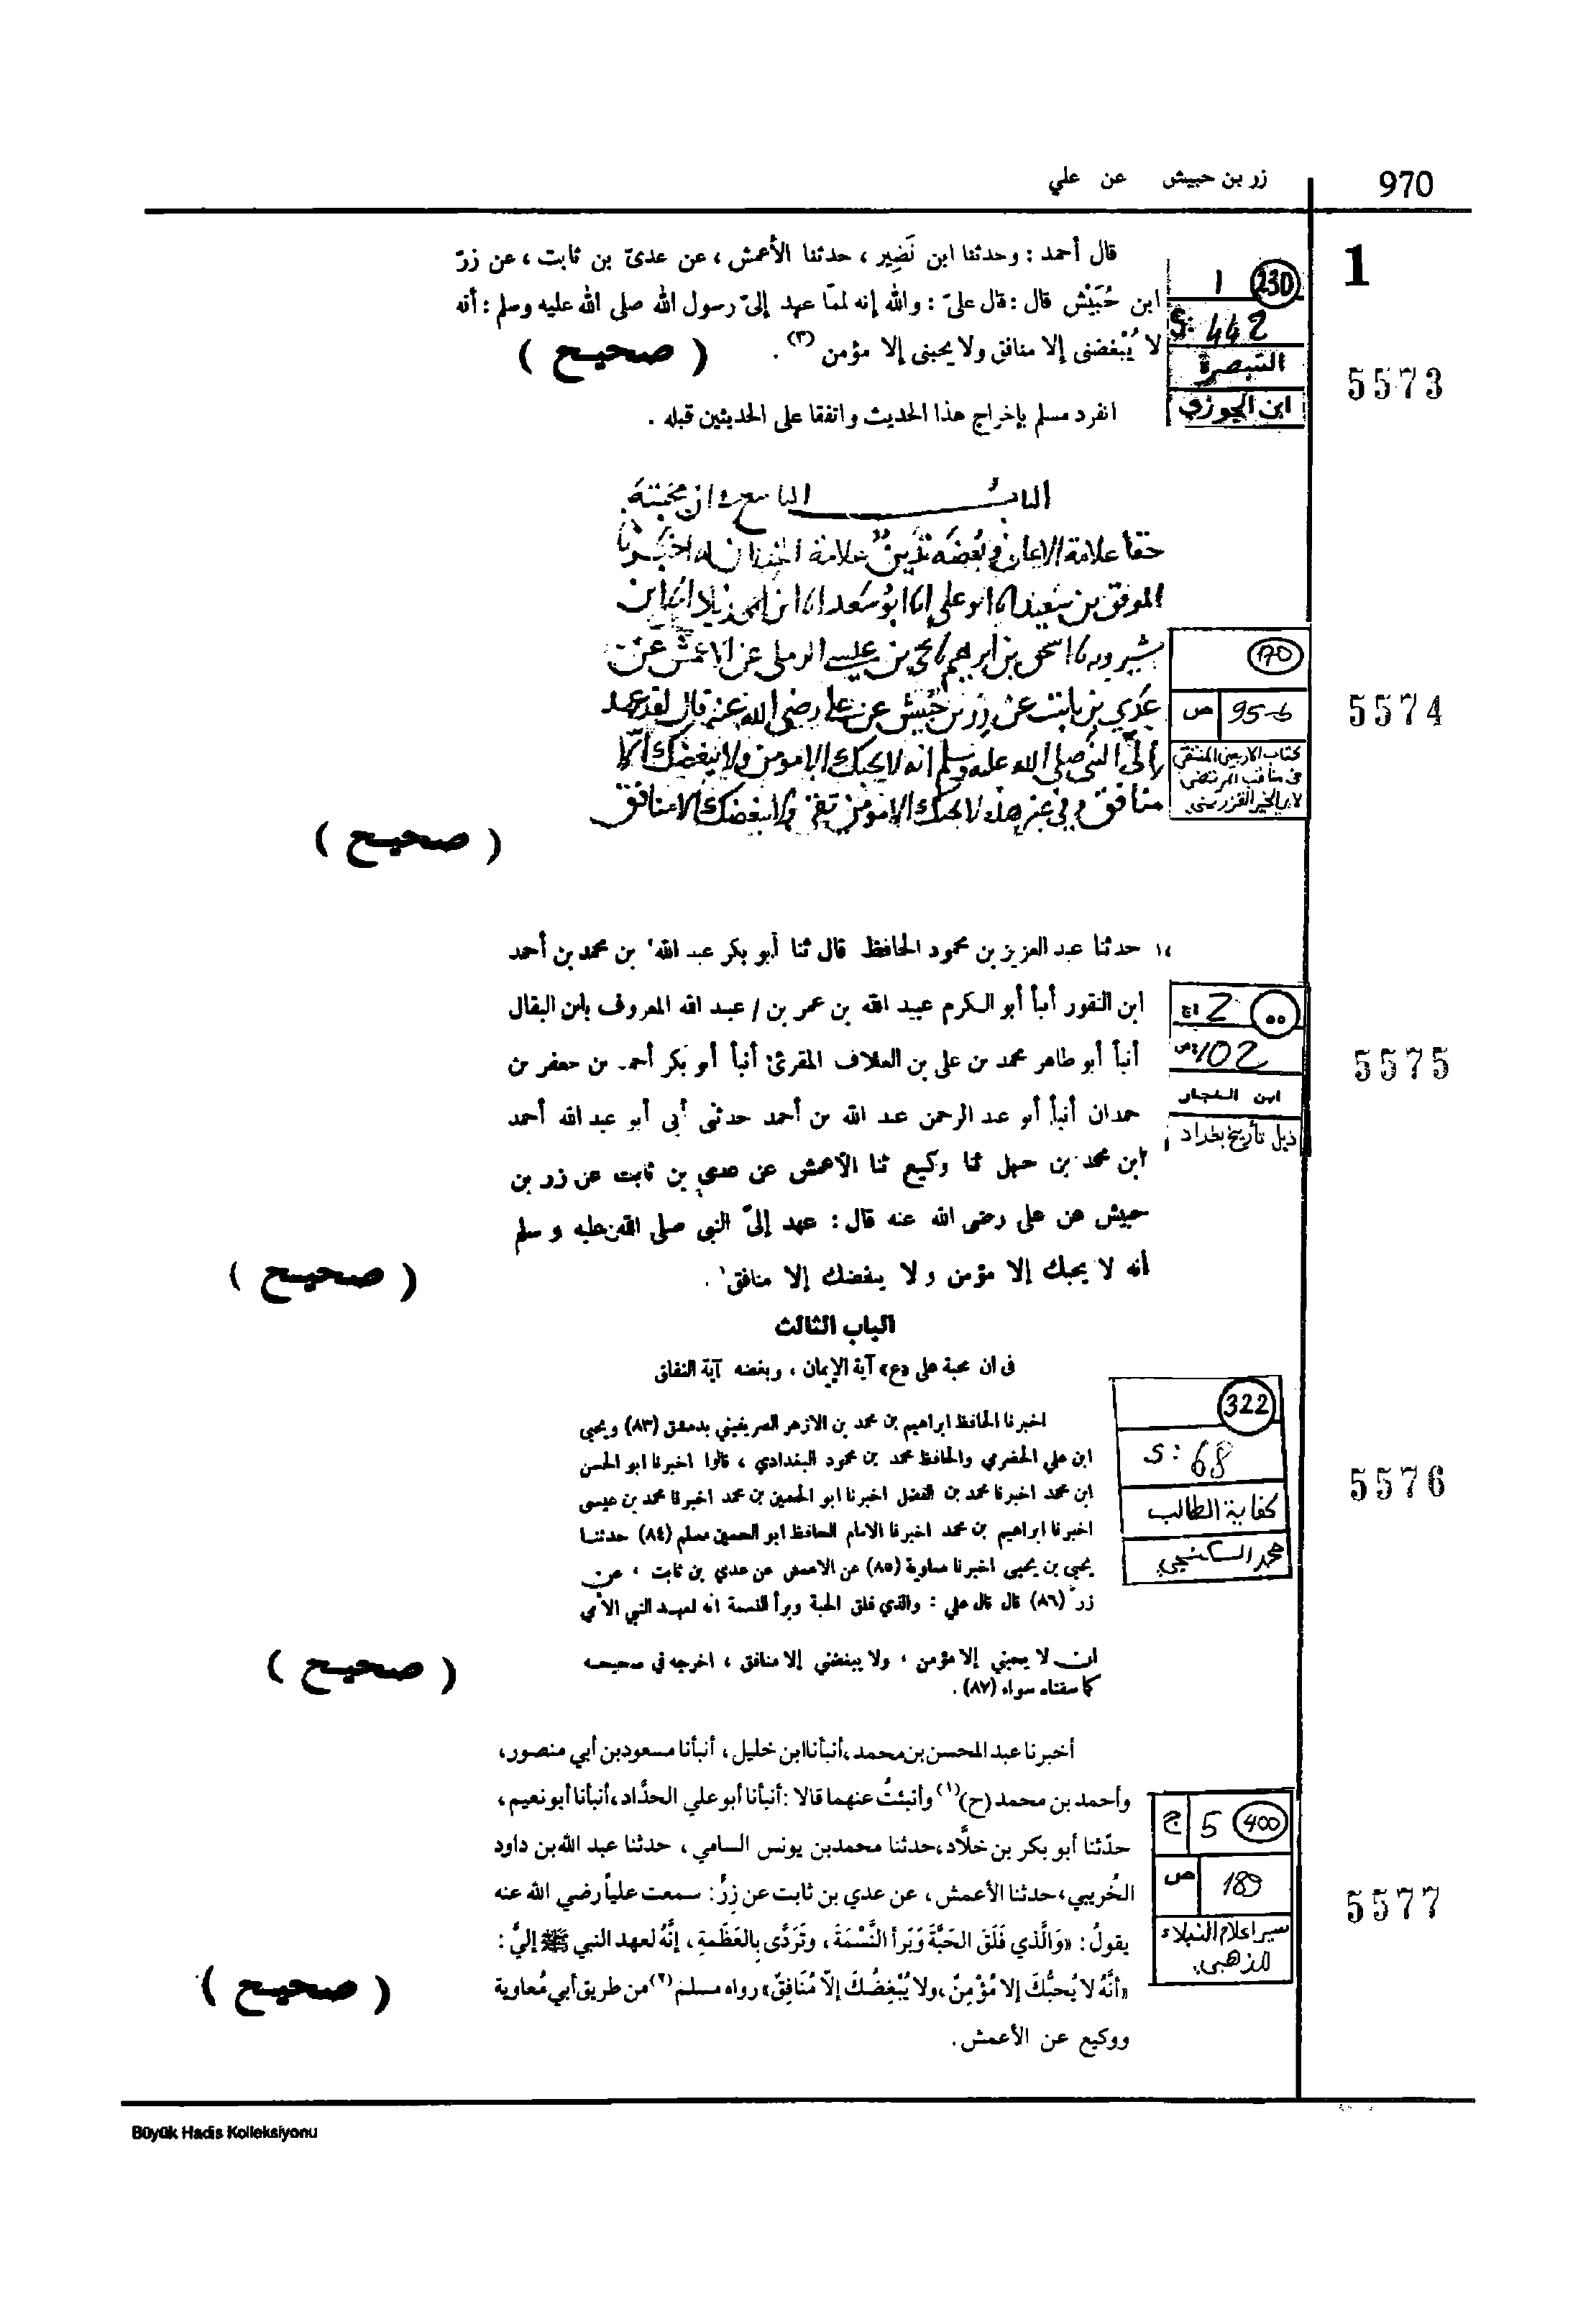 970
زر بن حبيش عن علي
1
قال أحمد : وحدثنا ابن نَضِير ، حدثنا الأعمش ، عن عدىّ بن ثابت ، عن زرّ
ابن حُبَيْش قال : قال علىّ : والله إنه لممّا عهد إلىّ رسول الله صلى الله عليه وسلم : أنه
لا يُبْغضنى إلا منافق ولا يحبنى إلا مؤمن (٣) .
( صحيح )
انفرد مسلم بإخراج هذا الحديث واتفقا على الحديثين قبله .
1 230
S: 442
التبصرة
ابن الجوزي
5573
الباب التاسع
حقا علامة الايمان
الموفق بن سعيد انا ابو علي انا ابو سعد انا ابن
شيرويه نا اسحق بن ابرهيم نا يحيى بن عيسى الرملي عن الاعمش عن
عدي بن ثابت عن زر بن حبيش عن علي رضي الله عنه قال لقد عهد
إليَّ النبي صلى الله عليه وسلم انه لا يحبك الا مومن ولا يبغضك الا
منافق وفي غير هذه لا يحبك الا مومن تقي ولا يبغضك الا منافق
( صحيح )
170
ص 95-b
كتاب الاربعين المنتقى
فى مناقب المرتضى
لابي الخير القزويني
5574
١٤ حدثنا عبد العزيز بن محمود الحافظ قال ثنا أبو بكر عبد الله بن محمد بن أحمد
ابن النقور أنبأ أبو الكرم عبيد الله بن عمر بن / عبد الله المعروف بابن البقال
أنبأ أبو طاهر محمد بن على بن العلاف المقرئ أنبأ أبو بكر أحمد بن جعفر بن
حمدان أنبأ أبو عبد الرحمن عبد الله بن أحمد حدثنى أبى أبو عبد الله أحمد
ابن محمد بن حنبل ثنا وكيع ثنا الأعمش عن عدي بن ثابت عن زر بن
حبيش عن على رضى الله عنه قال : عهد إلىّ النبى صلى الله عليه و سلم
أنه لا يحبك إلا مؤمن و لا يبغضك إلا منافق .
( صحيح )
2 ج
102 ص
ابن النجار
ذيل تأريخ بغداد
5575
الباب الثالث
في ان محبة علي «ع» آية الإيمان ، وبغضه آية النفاق
اخبرنا الحافظ ابراهيم بن محمد بن الازهر الصريفيني بدمشق (٨٣) ويحيى
ابن علي الحضرمي والحافظ محمد بن محمود البغدادي ، قالوا اخبرنا ابو الحسن
ابن محمد اخبرنا محمد بن الفضل اخبرنا ابو الحسين بن محمد اخبرنا محمد بن عيسى
اخبرنا ابراهيم بن محمد اخبرنا الامام الحافظ ابو الحسين مسلم (٨٤) حدثنا
يحيى بن يحيى اخبرنا معاوية (٨٥) عن الاعمش عن عدي بن ثابت ، عن
زر (٨٦) قال قال علي : والذي فلق الحبة وبرأ النسمة انه لعهد النبي الامي
ان لا يحبني إلا مؤمن ، ولا يبغضني إلا منافق ، اخرجه في صحيحه
كما سقناه سواء (٨٧) .
( صحيح )
322
S: 68
كفاية الطالب
محمد السكنجي
5576
أخبرنا عبد المحسن بن محمد ، أنبأنا ابن خليل ، أنبأنا مسعود بن أبي منصور ،
وأحمد بن محمد (ح)(١) وأنبئتُ عنهما قالا : أنبأنا أبو علي الحدَّاد ، أنبأنا أبو نعيم ،
حدّثنا أبو بكر بن خلَّاد ، حدثنا محمد بن يونس السامي ، حدثنا عبد الله بن داود
الخُريبي ، حدثنا الأعمش ، عن عدي بن ثابت عن زِرٍّ : سمعت علياً رضي الله عنه
يقولُ : «وَالَّذي فَلَقَ الحَبَّةَ وَبَرأ النَّسْمَةَ ، وتَرَدَّى بِالعَظَمةِ ، إنَّهُ لعهد النبي ﷺ إليَّ :
«أنَّهُ لا يُحبُّكَ إلا مُؤْمِنٌ ، ولا يُبْغِضُكَ إلاَّ مُنَافِقٌ» رواه مسلم (٢) من طريق أبي مُعاوية
ووكيع عن الأعمش .
( صحيح )
ج 5 400
ص 189
سير اعلام النبلاء
للذهبي
5577
Büyük Hadis Kolleksiyonu